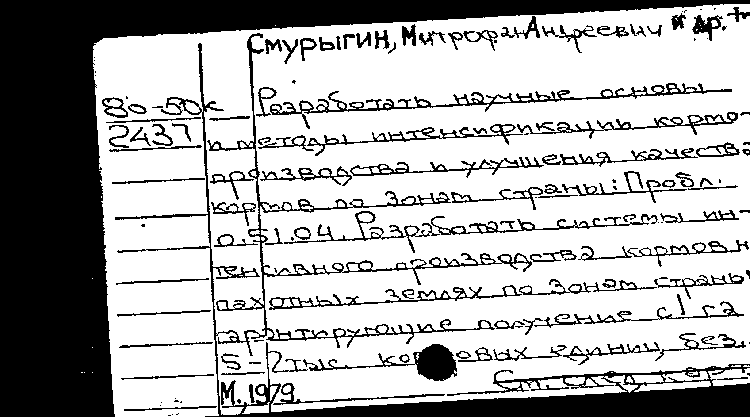 Смурыгин, Митрофан Андреевич и др.
80-50к Разработать научные основы
2437 и методы интенсификации кормо-
производства и улучшения качества
кормов по зонам страны: Пробл.
о.51.04. Разработать системы ин-
тенсивного производства кормов н
пахотных землях по зонам страны
гарантирующие получение с 1 га
5-2 тыс. кормовых единиц без.
М., 1979. См. след. карт.